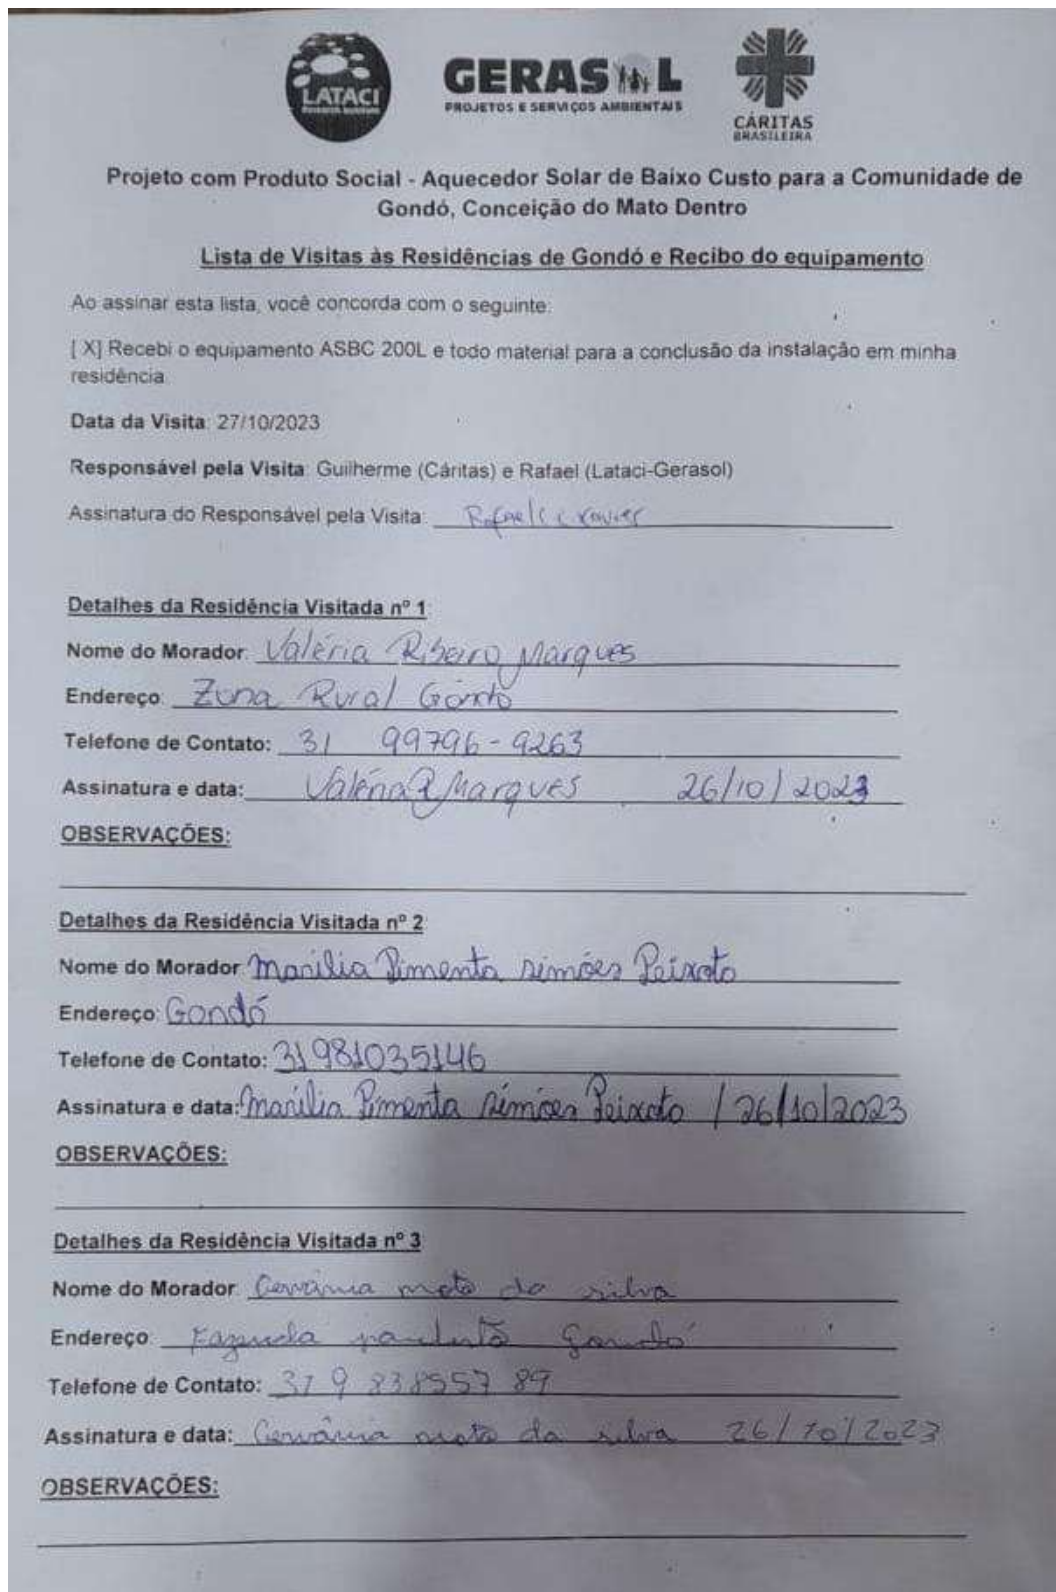 LATACI
GERASOL
PROJETOS E SERVIÇOS AMBIENTAIS
CÁRITAS
BRASILEIRA
Projeto com Produto Social - Aquecedor Solar de Baixo Custo para a Comunidade de
Gondó, Conceição do Mato Dentro
Lista de Visitas às Residências de Gondó e Recibo do equipamento
Ao assinar esta lista, você concorda com o seguinte:
[ X] Recebi o equipamento ASBC 200L e todo material para a conclusão da instalação em minha
residência.
Data da Visita: 27/10/2023
Responsável pela Visita: Guilherme (Cáritas) e Rafael (Lataci-Gerasol)
Assinatura do Responsável pela Visita: Rafael Xavier
Detalhes da Residência Visitada nº 1:
Nome do Morador: Valéria Ribeiro Marques
Endereço: Zona Rural Gondó
Telefone de Contato: 31 99796-9263
Assinatura e data: Valéria R Marques 26/10/2023
OBSERVAÇÕES:
Detalhes da Residência Visitada nº 2
Nome do Morador: Marilia Pimenta simões Peixoto
Endereço: Gondó
Telefone de Contato: 31981035146
Assinatura e data: Marilia Pimenta simões Peixoto / 26/10/2023
OBSERVAÇÕES:
Detalhes da Residência Visitada nº 3
Nome do Morador: mota da silva
Endereço: Fazenda Gondó
Telefone de Contato: 31 9 838557 89
Assinatura e data: mota da silva 26/10/2023
OBSERVAÇÕES: